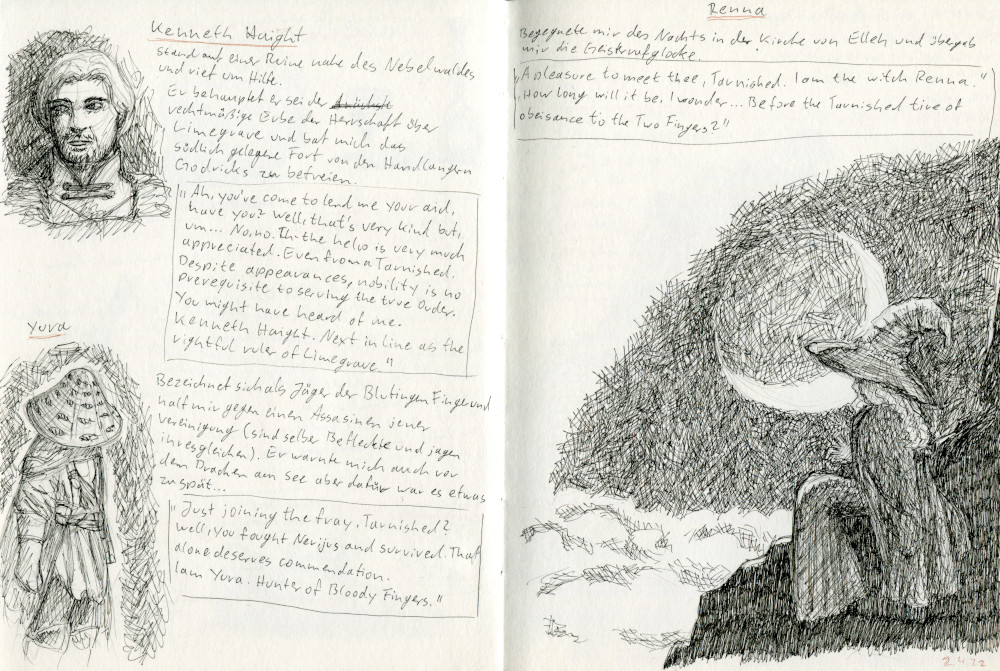 Kenneth Haight
stand auf einer Ruine nahe des Nebelwaldes
und rief um Hilfe.
Er behauptet er sei der
rechtmäßige Erbe der Herrschaft über
Limegrave und bat mich das
südlich gelegene Fort von den Handlangern
Godricks zu befreien.
"Ah, you've come to lend me your aid,
have you? Well, that's very kind but,
um... No, no. Th-the help is very much
appreciated. Even from a Tarnished.
Despite appearances, nobility is no
prerequisite to serving the true Order.
You might have heard of me.
Kenneth Haight. Next in line as the
rightful ruler of Limegrave."
Yura
Bezeichnet sich als Jäger der Blutingen Finger und
half mir gegen einen Assasinen jener
vereinigung (sind selber Befleckte und jagen
ihresgleichen). Er warnte mich auch vor
dem Drachen am See aber dafür war es etwas
zu spät...
"Just joining the fray, Tarnished?
Well, you fought Nerijus and survived. That
alone deserves commendation.
I am Yura. Hunter of Bloody Fingers."
Renna
Begegnete mir des Nachts in der Kirche von Elleh und übergab
mir die Geisterrufglocke.
"A pleasure to meet thee, Tarnished. I am the witch Renna."
"How long will it be, I wonder... Before the Tarnished tire of
obeisance to the Two Fingers?"
2.4.22